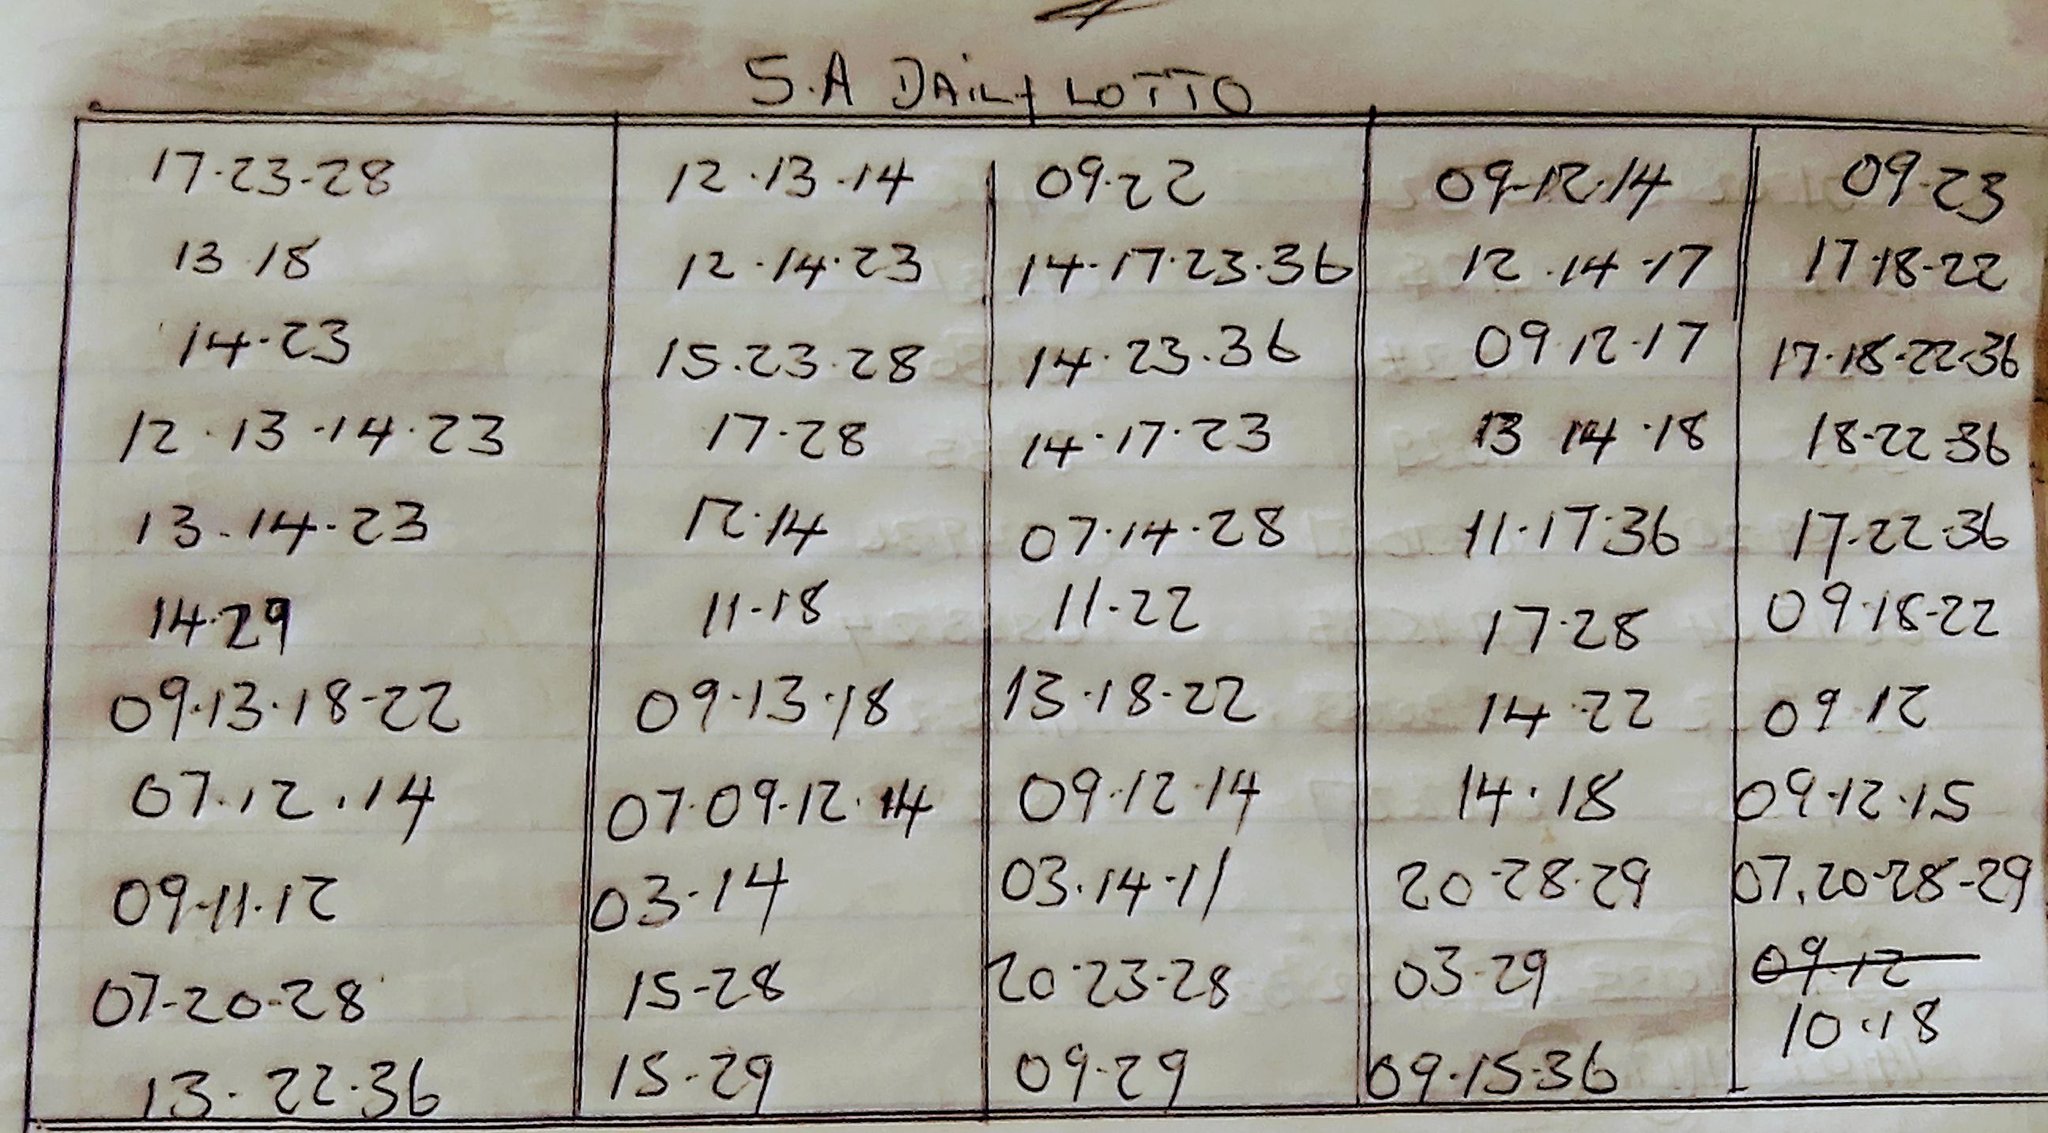 S.A DAILY LOTTO
17-23-28 12.13.14 09.22 09-12.14 09-23
13 18 12.14.23 14.17.23.36 12.14-17 17-18-22
14.23 15.23.28 14.23.36 09 12-17 17.18-22-36
12.13.14.23 17-28 14.17.23 13 14.18 18-22 36
13.14.23 12.14 07.14.28 11.17.36 17-22-36
14.29 11-18 11-22 17-28 09.18-22
09.13.18-22 09.13.18 13-18-22 14.22 09 12
07.12.14 07.09.12.14 09.12.14 14.18 09.12.15
09-11.12 03-14 03.14-11 20-28.29 07.20-28-29
07-20-28 15-28 20.23-28 03-29 09.12
10.18
13.22.36 15-29 09-29 09.15-36